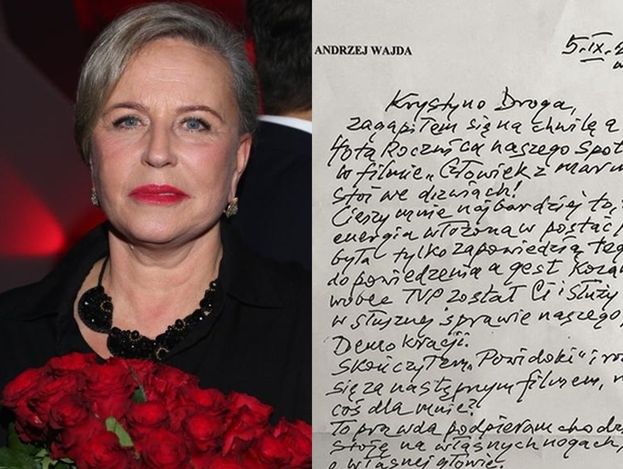 ANDRZEJ WAJDA
5. IX. 2
Krystyno Droga,
zagapiłem się na chwilę a
40ta Rocznica naszego Spot
w filmie „Człowiek z marm
stoi we drzwiach!
Cieszy mnie najbardziej to, ż
energia włożona w postać
była tylko zapowiedzią teg
do powiedzenia a gest Koza
wobec TVP został Ci i służy
w słusznej sprawie naszego,
Demokracji.
Skończyłem „Powidoki" i ro
się za następnym filmem, m
coś dla mnie?
To prawda podpieram chodz
stoję na własnych nogach,
o własnej głowie.